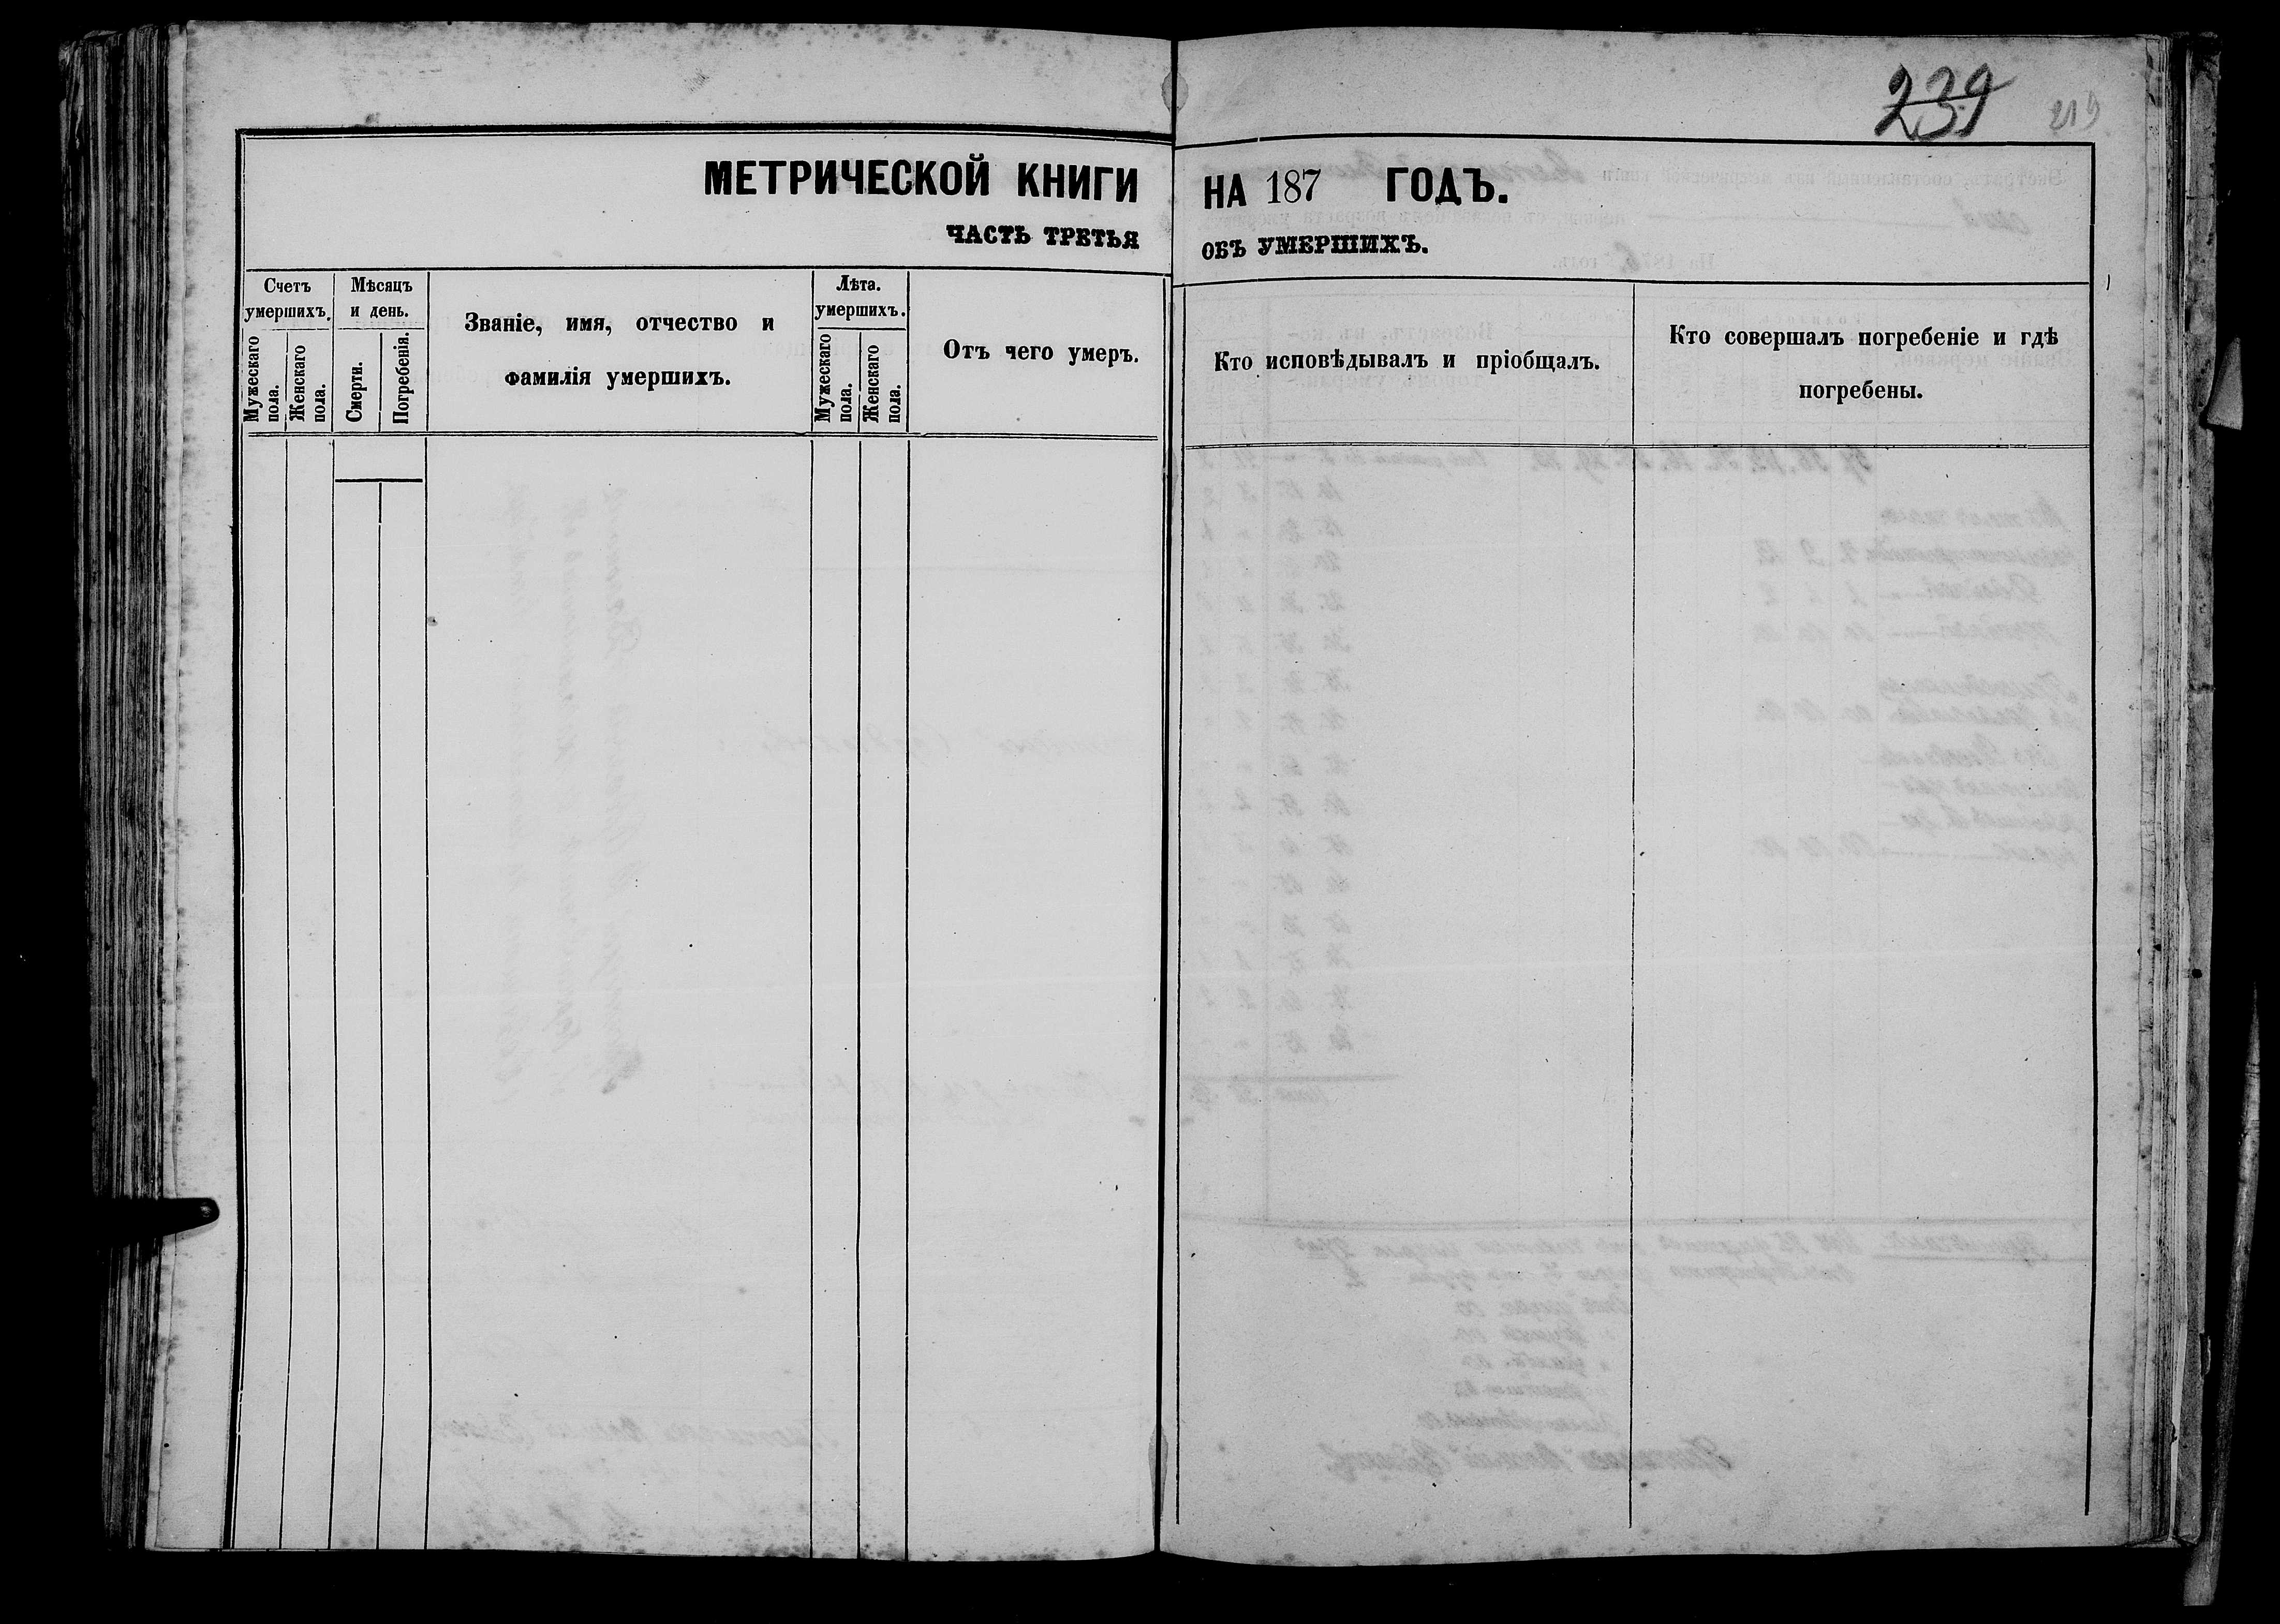 239 219
МЕТРИЧЕСКОЙ КНИГИ НА 187 ГОДЪ.
ЧАСТЬ ТРЕТЬЯ ОБЪ УМЕРШИХЪ.
Счетъ
умершихъ.
Мужескаго
пола.
Женскаго
пола.
Мѣсяцъ
и день.
Смерти.
Погребенія.
Званіе, имя, отчество и
фамилія умершихъ.
Лѣта.
умершихъ.
Мужескаго
пола.
Женскаго
пола.
Отъ чего умеръ.
Кто исповѣдывалъ и пріобщалъ.
Кто совершалъ погребеніе и гдѣ
погребены.